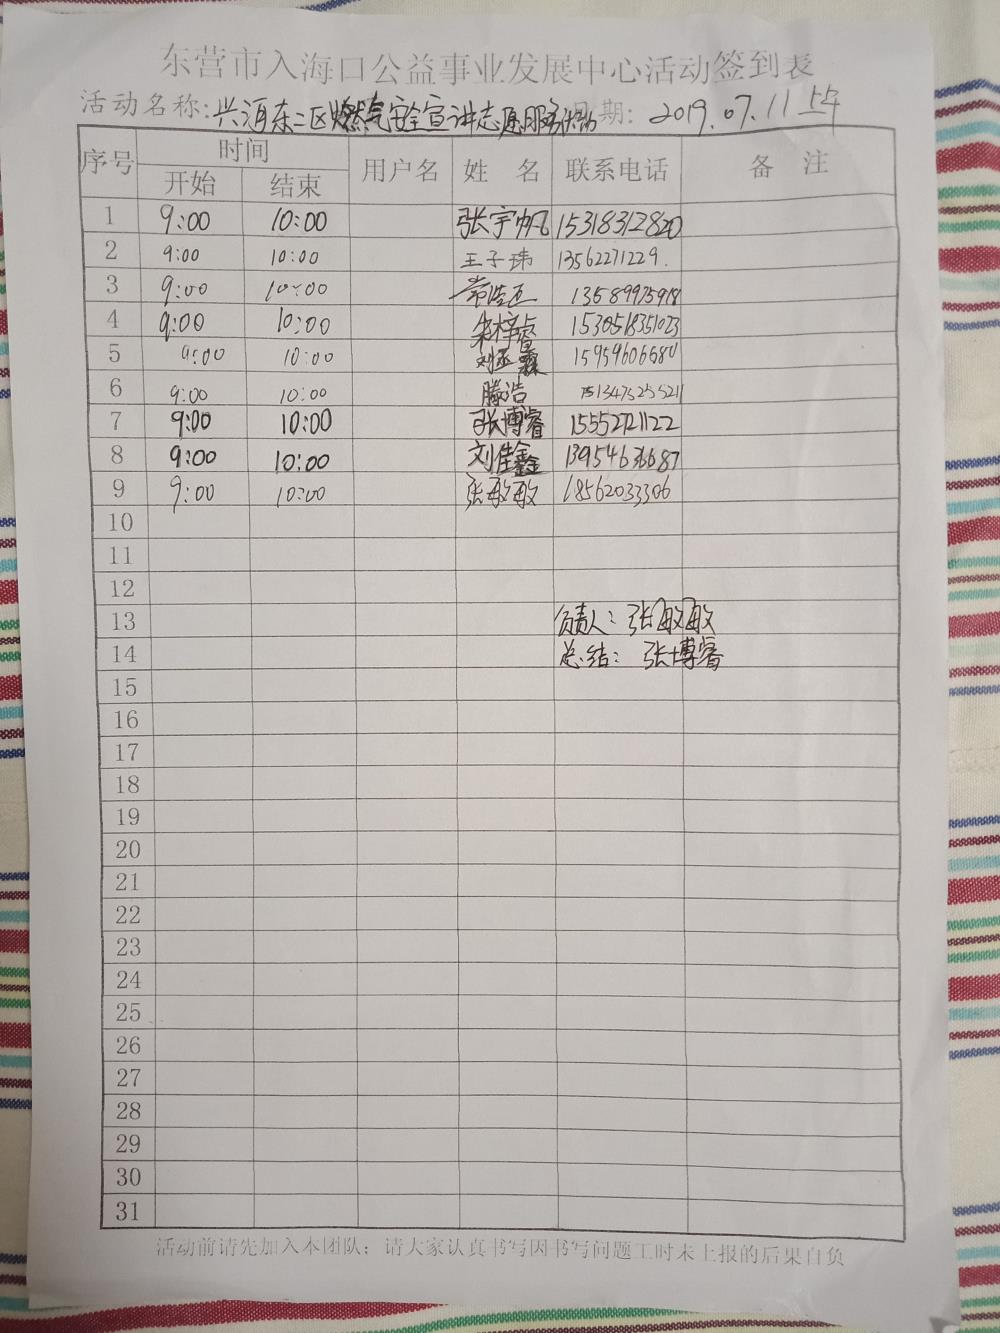 东营市入海口公益事业发展中心活动签到表
活动名称:兴河东二区燃气安全宣讲志愿服务活动 日期: 2019.07.11 上午
序号 时间 用户名 姓 名 联系电话 备 注
开始 结束
1 9:00 10:00 张宇帆 15318312820
2 9:00 10:00 王子玮 13562271229.
3 9:00 10:00 常浩 13589975918
4 9:00 10:00 朱梓睿 1530518351023
5 9:00 10:00 15959606680
6 9:00 10:00 滕浩 13475255211
7 9:00 10:00 张博睿 15552721122
8 9:00 10:00 刘佳鑫 13954636687
9 9:00 10:00 张敏敏 18562033306
10
11
12
13 负责人: 张敏敏
14 总结: 张博睿
15
16
17
18
19
20
21
22
23
24
25
26
27
28
29
30
31
活动前请先加入本团队；请大家认真书写因书写问题工时未上报的后果自负